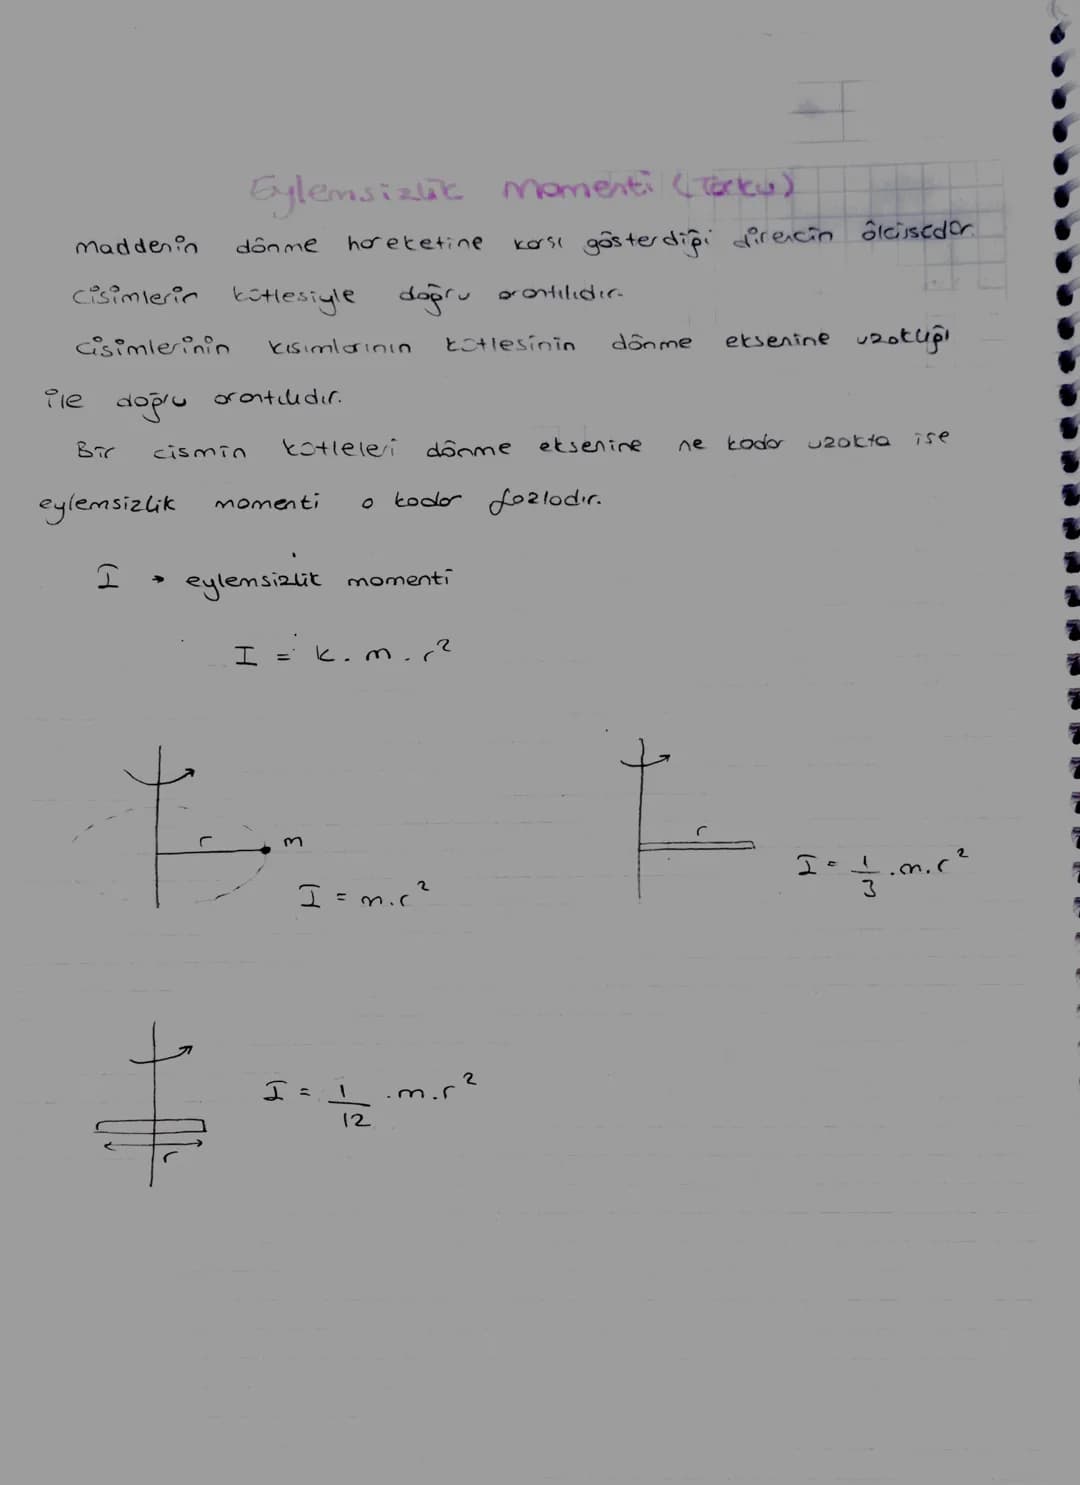 Eylemsizlik momenti (Torku)
maddenin dönme hareketine karşı gösterdiği direncin ölçüsüdür.
Cisimlerin kütlesiyle doğru orantılıdır.
Cisimlerinin kısımlarının kütlesinin dönme eksenine uzaklığı
ile doğru orantılıdır.
Bir cismin kütleleri dönme eksenine ne kadar uzakta ise
eylemsizlik momenti o kadar fazladır.
I → eylemsizlik momenti
I = k.m.r²
r m
I = m.r²
r
I = 1/3 .m.r²
I = 1/12 .m.r²
r